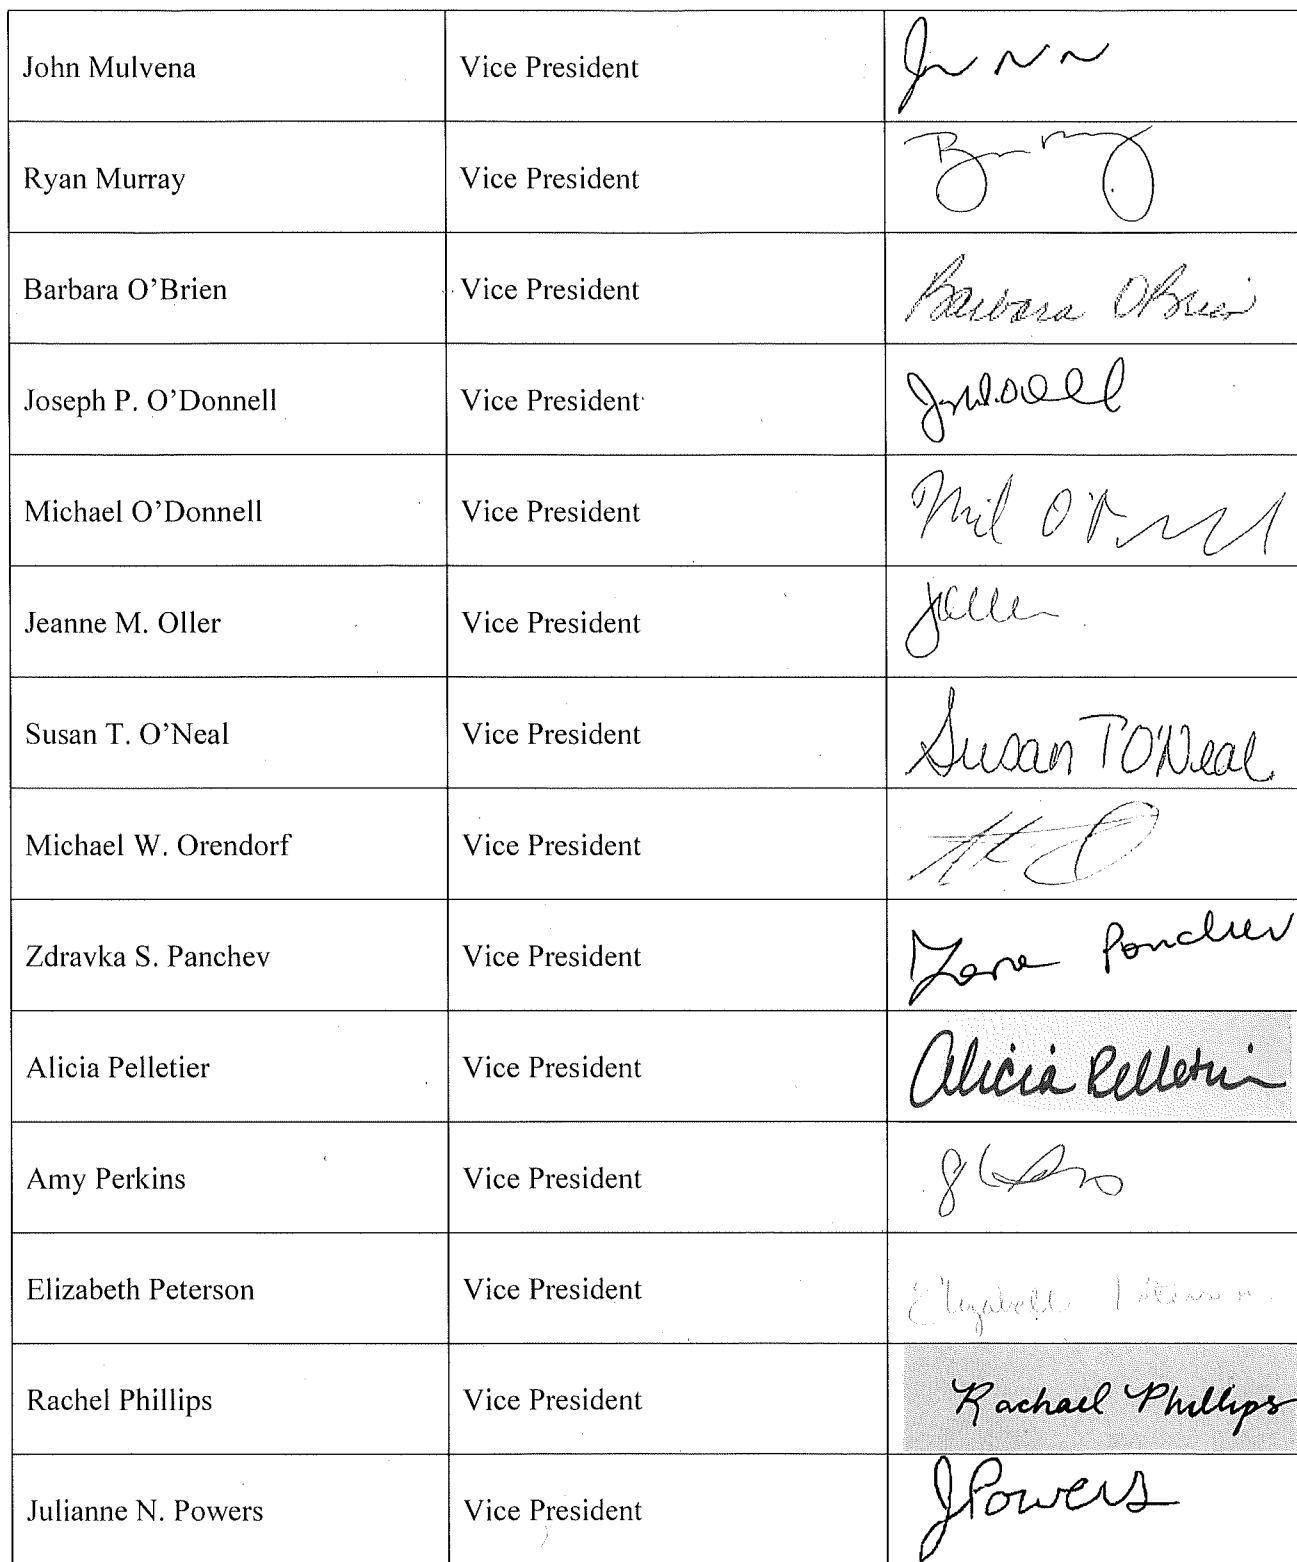 John Mulvena Vice President
Ryan Murray Vice President
Barbara O'Brien Vice President Barbara O'Brien
Joseph P. O'Donnell Vice President
Michael O'Donnell Vice President
Jeanne M. Oller Vice President
Susan T. O'Neal Vice President Susan T O'Neal
Michael W. Orendorf Vice President
Zdravka S. Panchev Vice President Panchev
Alicia Pelletier Vice President Alicia Pelletier
Amy Perkins Vice President
Elizabeth Peterson Vice President Elizabeth Peterson
Rachel Phillips Vice President Rachael Phillips
Julianne N. Powers Vice President JPowers